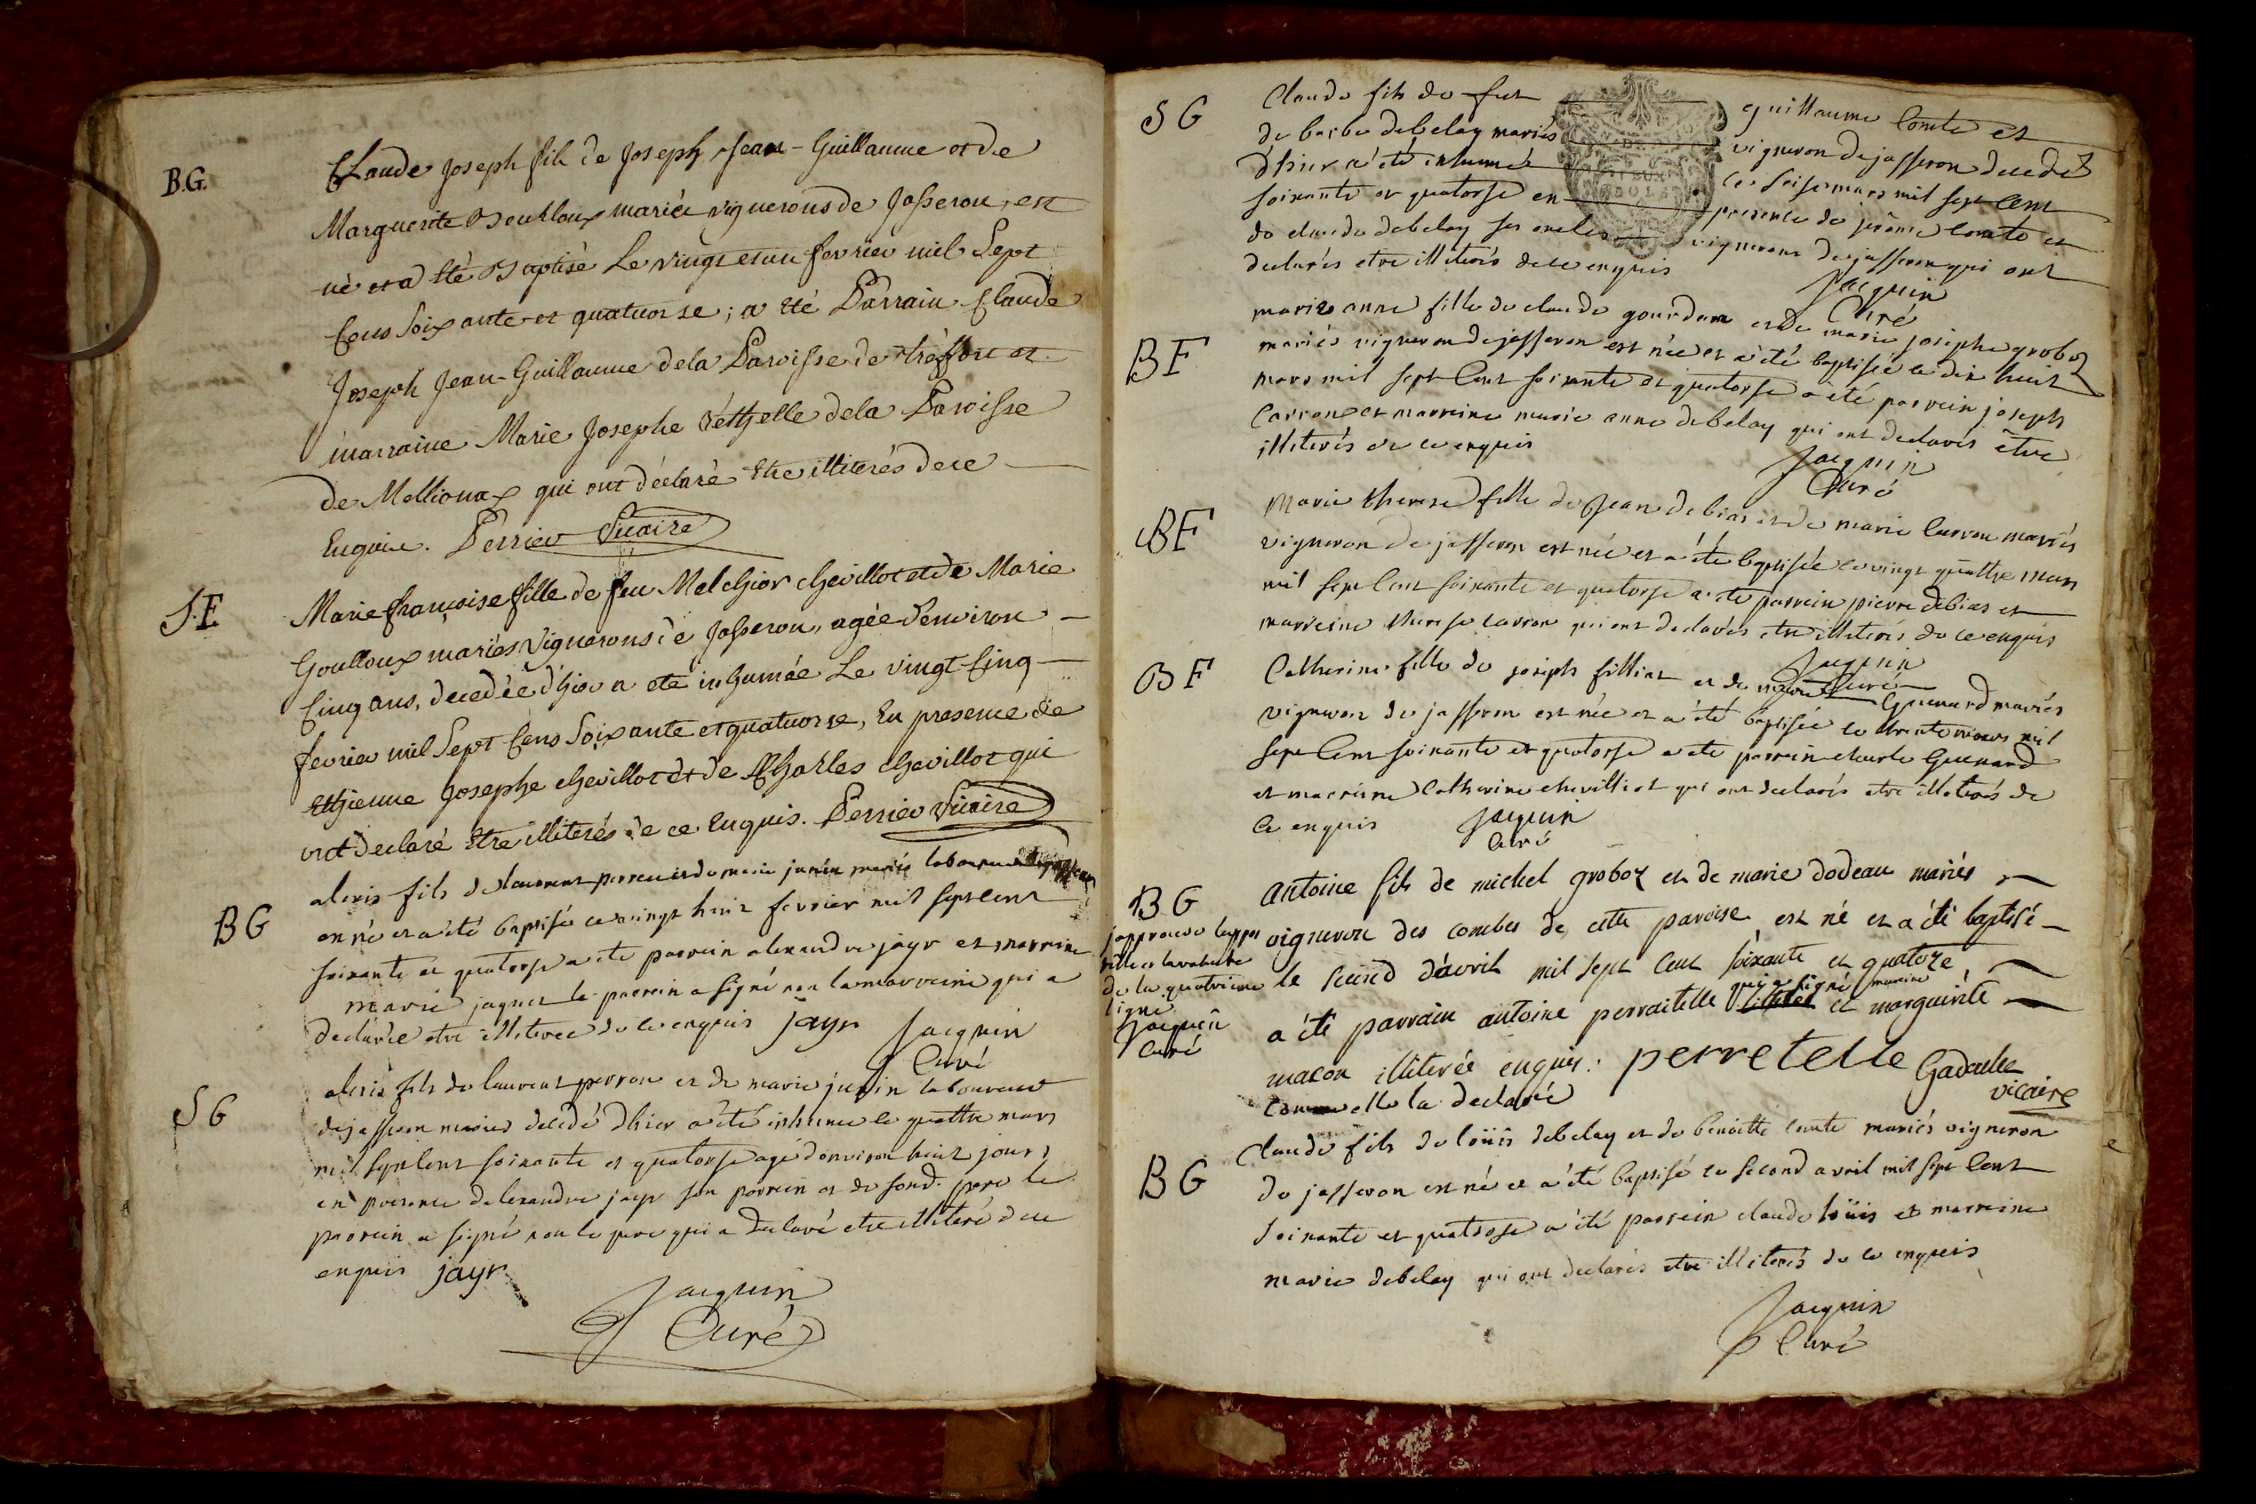 B.G.
Claude Joseph fils de Joseph Jean-Guillaume et de
Marguerite mariés vignerons de Jasseron, est
né et a été Baptisé Le vingt et un fevrier mil Sept
Cens Soixante et quatorze ; a été Parrain Claude
Joseph Jean-Guillaume de la Paroisse de treffort et
marraine Marie Josephe de la Paroisse
de Mellionax qui ont déclaré Etre illiterés de ce
Enquis. Perrier Vicaire
S.F.
Marie françoise fille de feu Melchior chevillot et de Marie
Goulloux mariés Vignerons de Jasseron, agée d'environ
Cinq ans, decedée d'hier a eté inhumée Le vingt Cinq
fevrier mil Sept Cens Soixante et quatorze, En presence de
Ethienne Josephe chevillot et de Charles chevillot qui
ont declaré Etre illiterés de ce Enquis. Perrier Vicaire
BG
alexis fils de laurent perron et de marie junin mariés laboureur
en né et a été baptisé ce vingt huit fevrier mil sept cent
soixante et quatorse a ete parrein alexandre jayr et marreine
marie jaquet le parrein a signé non la marreine qui a
declarée etre illiteree de ce enquis jayr Jacquin
Curé
SG
alexis fils de laurent perron et de marie junin laboureur
de jasseron mariés decedé dhier a été inhumé le quattre mars
mil sept cent soixante et quatorse agé d'environ huit jours
en presence dalexandre jayr son parrein et de sond. pere le
parrein a signé non le pere qui a declaré etre illiteré de ce
enquis jayr
Jacquin
Curé
SG
Claude fils de feu guillaume Comte et
de barbe debelay mariés vigneron de jasseron decedé
d'hier a été inhumé ce seise mars mil sept Cent
soixante et quatorse en presence de jerôme Comte et
de claude debelay ses oncles vignerons de jasseron qui ont
declarés etre illiterés de ce enquis
Jacquin
Curé
BF
marie anne fille de claude gourdan et de marie josephe groboz
mariés vigneron de jasseron est née et a été baptisée le dix huit
mars mil sept Cent soixante et quatorse a été parrein joseph
Carron et marreine marie anne debelay qui ont declarés être
illiterés de ce enquis
Jacquin
Curé
BF
Marie therese fille de Jean debias et de marie Carron mariés
vigneron de jasseron est née et a été baptisée ce vingt quattre mars
mil sept Cent soixante et quatorse a ete parrein pierre debias et
marreine therese carron qui ont declarés etre illiterés de ce enquis
Jacquin
Curé
BF
Catherine fille de joseph filliat et de marie Guenard mariés
vigneron de jasseron est née et a été baptisée le trente mars mil
sept Cent soixante et quatorse a ete parrein Guenard
et marreine Catherine chevilliot qui ont declarés etre illiterés de
ce enquis Jacquin
Curé
BG
antoine fils de michel groboz et de marie dodeau mariés
vigneron des combes de cette paroise, est né et a été baptisé
le second d'avril mil sept Cent soixante et quatorze,
a été parrain antoine perraitelle qui a signé et marguerite
macon illiterée enquis: perretelle
comme elle la declaré Gadaulle
vicaire
japprouve
de la quatrieme
ligne
Jacquin
Curé
BG
Claude fils de loüis debelay et de benoitte Comte mariés vigneron
de jasseron est né et a été baptisé ce second avril mil sept Cent
soixante et quatorse a été parrein claude loüis et marreine
marie debelay qui ont declarés etre illiterés de ce enquis
Jacquin
Curé